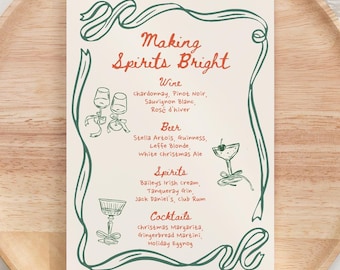 Making
Spirits Bright
Wine
Chardonnay, Pinot Noir,
Sauvignon Blanc,
Rosé d'hiver
Beer
Stella Artois, Guinness,
Leffe Blonde,
White Christmas Ale
Spirits
Baileys Irish Cream,
Tanqueray Gin,
Jack Daniel's, Club Rum
Cocktails
Christmas Margarita,
Gingerbread Martini,
Holiday Eggnog